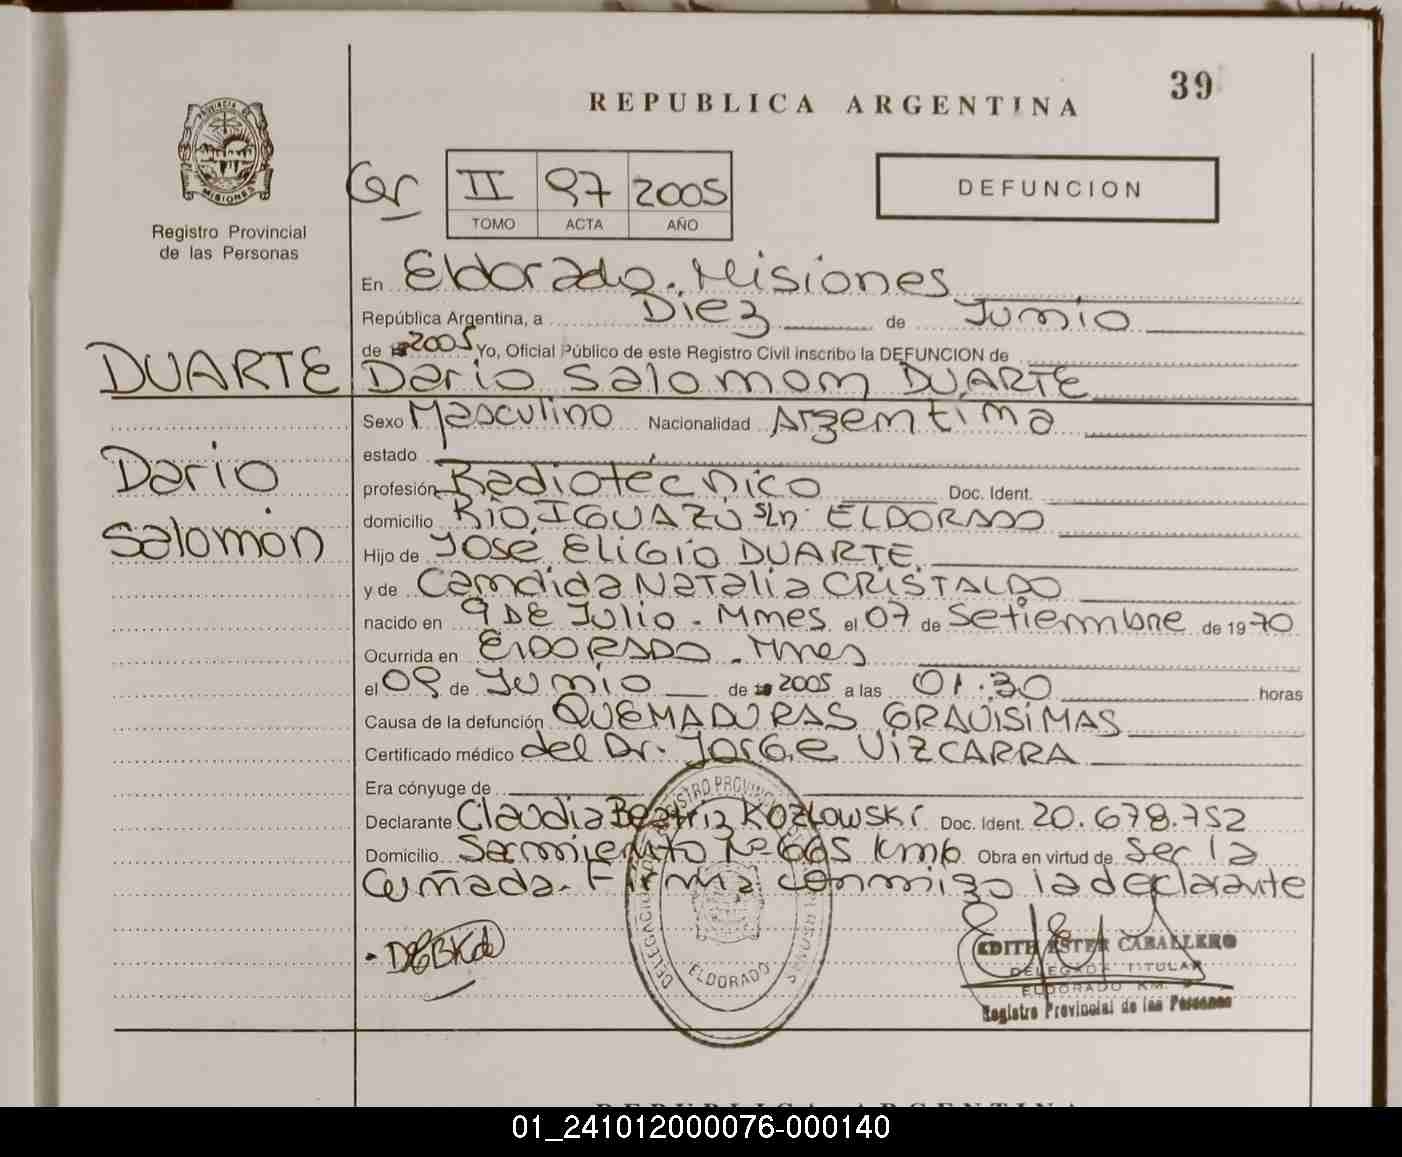 39
REPUBLICA ARGENTINA
PROVINCIA DE
MISIONES
Registro Provincial
de las Personas
II 97 2005
TOMO ACTA AÑO
DEFUNCION
En Eldorado. Misiones
República Argentina, a Diez de Junio
de 2005 Yo, Oficial Público de este Registro Civil inscribo la DEFUNCION de
DUARTE Dario Salomom DUARTE
Sexo Masculino Nacionalidad Argentina
estado
Dario
profesión Radiotécnico Doc. Ident.
domicilio RIO IGUAZÚ s/n ELDORADO
Salomón
Hijo de José Eligio DUARTE
y de Candida Natalia CRISTALDO
nacido en 9 DE Julio - Mnes el 07 de Setiembre de 1970
Ocurrida en ElDORADO - Mnes
el 09 de Junio de 2005 a las 01.30 horas
Causa de la defunción QUEMADURAS GRAVISIMAS
Certificado médico del Dr. Jorge VIZCARRA
Era cónyuge de
Declarante Claudia Beatriz Kozlowski Doc. Ident. 20.678.752
Domicilio Sarmiento Nº 665 Km6 Obra en virtud de ser la
Cuñada. Firma conmigo la declarante
ELDORADO
EDITH ESTER CABALLERO
DELEGADA TITULAR
ELDORADO KM.
Registro Provincial de las Personas
REPUBLICA ARGENTINA
01_241012000076-000140